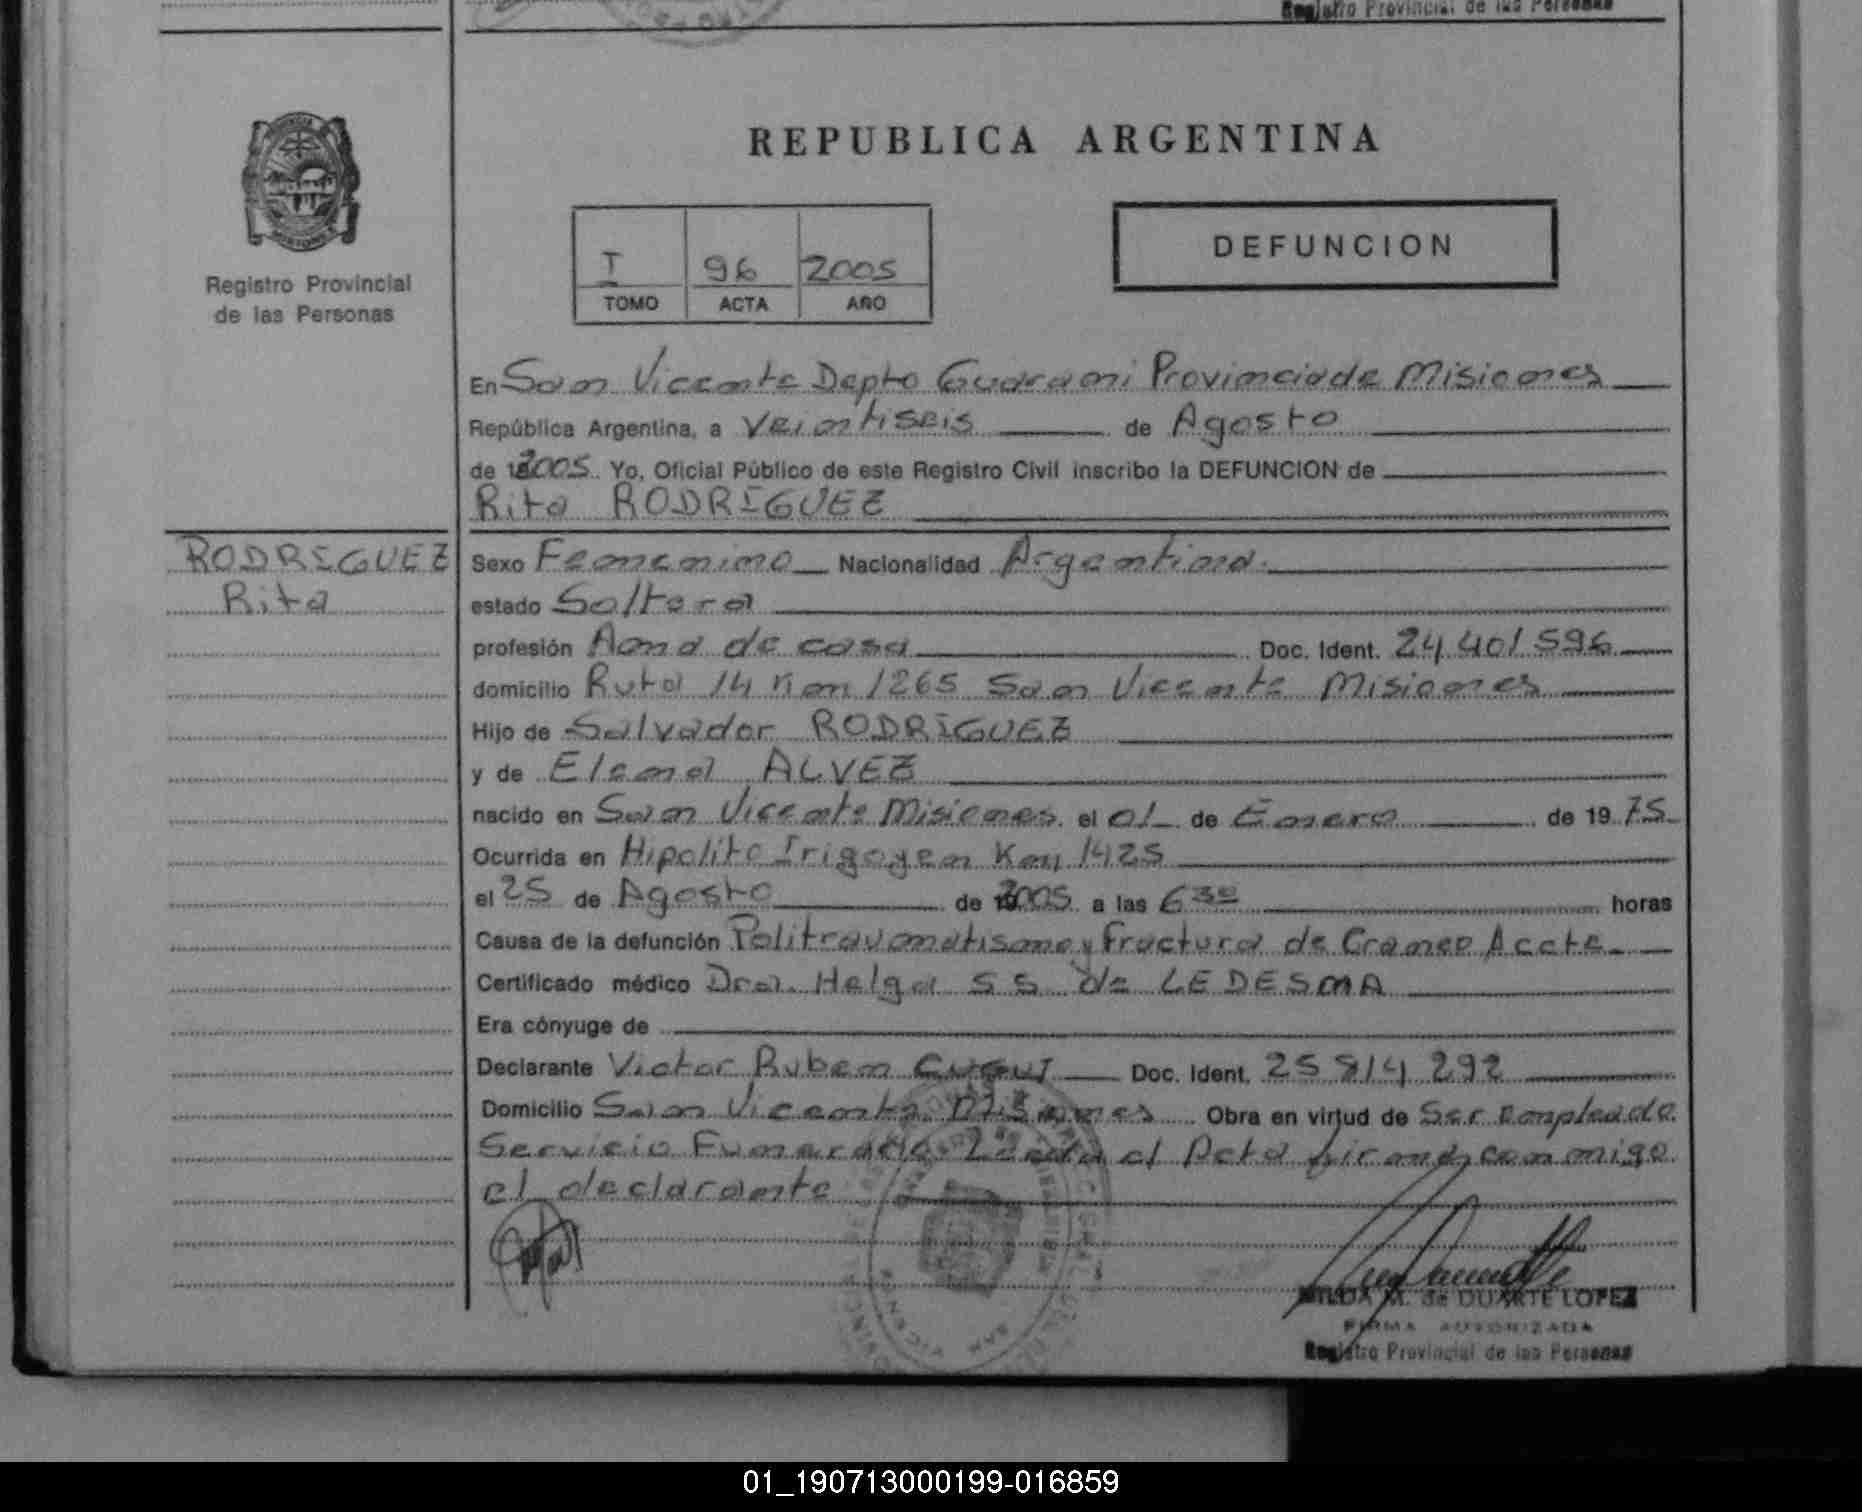 Registro Provincial de las Personas
REPUBLICA ARGENTINA
DEFUNCION
I 96 2005
TOMO ACTA AÑO
PROVINCIA DE
MISIONES
Registro Provincial
de las Personas
En San Vicente Depto Guarani Provincia de Misiones
República Argentina, a Veintiseis de Agosto
de 2005 Yo, Oficial Público de este Registro Civil inscribo la DEFUNCION de
Rita RODRIGUEZ
RODRIGUEZ
Rita
Sexo Femenino Nacionalidad Argentina.
estado Soltera
profesión Ama de casa Doc. Ident. 24.401.596
domicilio Ruta 14 Km 1265 San Vicente Misiones
Hijo de Salvador RODRIGUEZ
y de Elena ALVEZ
nacido en San Vicente Misiones. el 01 de Enero de 1975
Ocurrida en Hipolito Irigoyen Km 1425
el 25 de Agosto de 2005 a las 6 30 horas
Causa de la defunción Politraumatismo y Fractura de Craneo Accte
Certificado médico Dra. Helga S S de LEDESMA
Era cónyuge de
Declarante Victor Ruben Doc. Ident. 25 814 292
Domicilio San Vicente Misiones Obra en virtud de Ser empleado
Servicio Funerario. Leida el Acta firma conmigo
el declarante
HILDA M. de DUARTE LOPEZ
FIRMA AUTORIZADA
Registro Provincial de las Personas
01_190713000199-016859